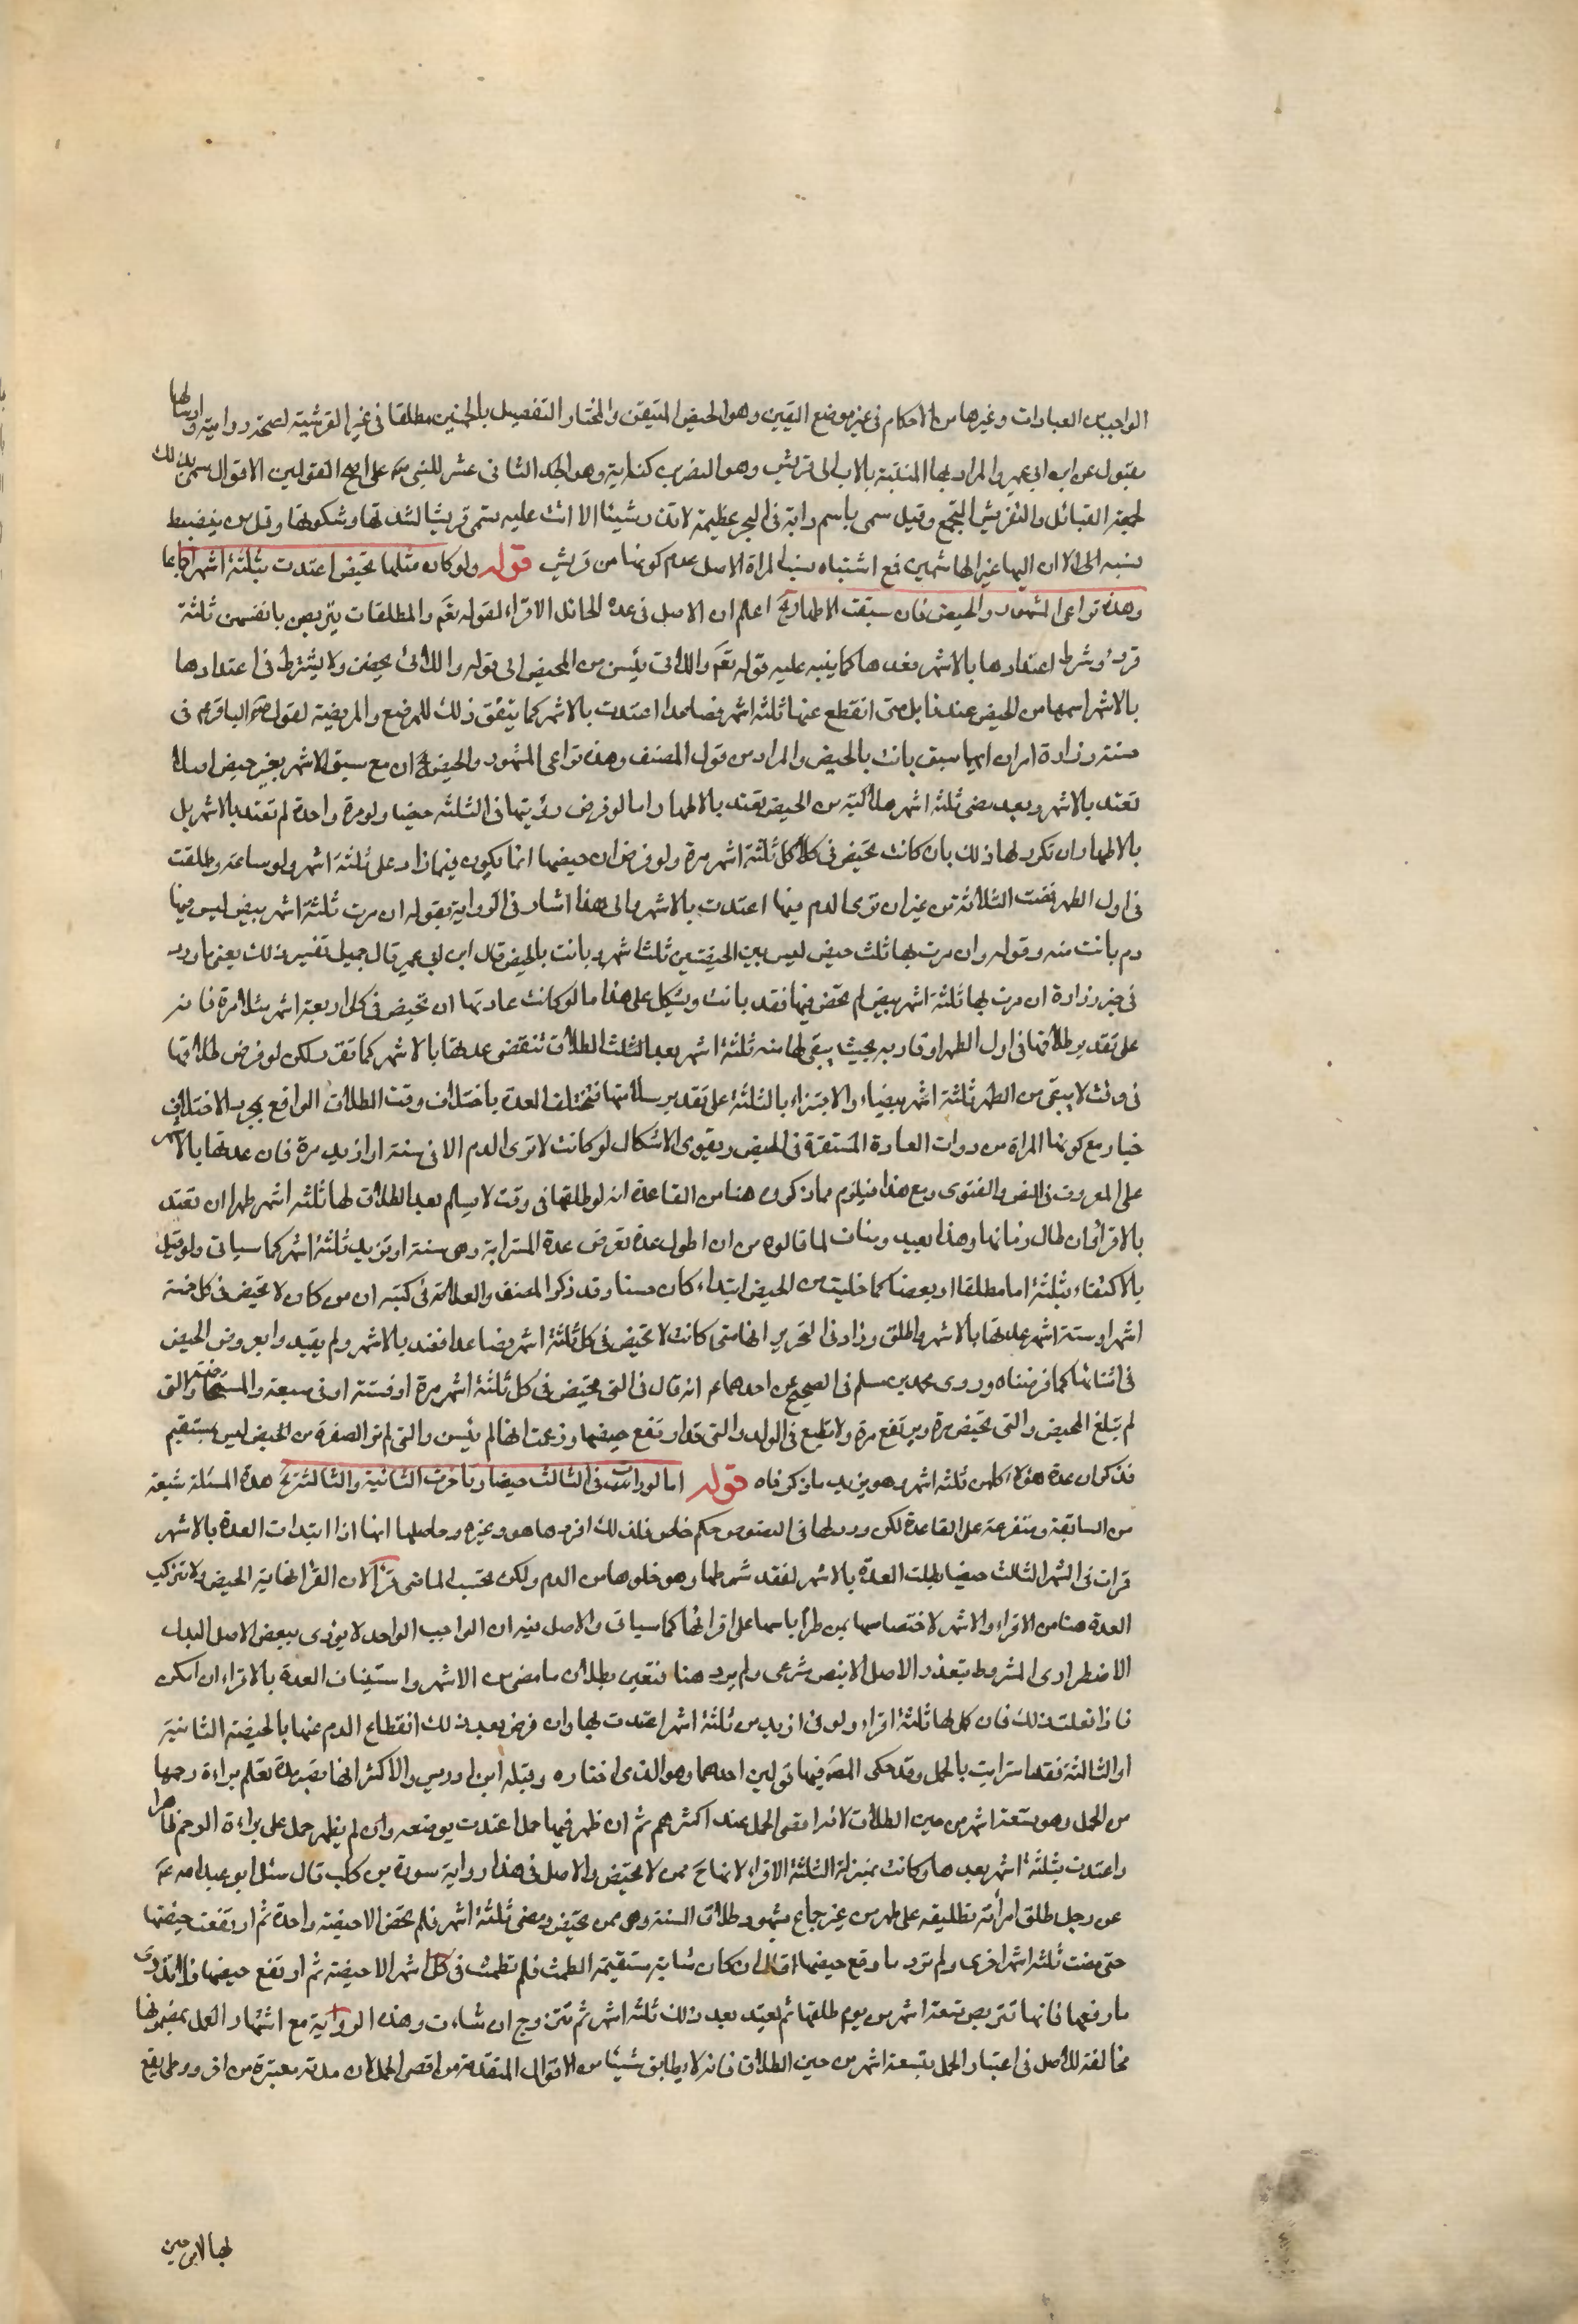 الواجب من العبادات وغيرها من الاحكام فى غير موضع اليقين وهو الحيض المتيقن والمختار التفصيل بالخمسين مطلقا فى غير القرشية لصحة رواية وارسالها
مقبول عن ابن ابى عمير والمراد بها المنتسبة بالاب الى قريش وهو النضر بن كنانة وهو الجد الثانى عشر للنبى ص على اصح القولين الاقوال سمى بذلك
لجمعه القبائل والتقريش التجمع وقيل سمى باسم دابة فى البحر عظيمة لا تذر شيئا الا اتت عليه تسمى قريشا لشدتها وشوكتها وقل من ينضبط
نسبه الى الان اليها غير الهاشميين فمع اشتباه نسب المراة الاصل عدم كونها من قريش قوله ولو كان مثلها تحيض اعتدت بثلثة اشهر اجماعا
وهذه تراعى الشهور والحيض فان سبقت الاطهار الخ اعلم ان الاصل فى عدة الحائل الاقراء لقوله تعم والمطلقات يتربصن بانفسهن ثلثة
قروء وشرط اعتدادها بالاشهر فقدها كما ينبه عليه قوله تعم واللائى يئسن من المحيض الى قوله واللائى لم يحضن ولا يشترط فى اعتدادها
بالاشهر اسمها من الحيض عندنا بل متى انقطع عنها ثلثة اشهر فصاعدا اعتدت بالاشهر كما يتفق ذلك للمرضع والمريضة لقول الباقر ع فى
حسنة زرارة امران ايهما سبق بانت بالحيض والمراد من قول المصنف وهذه تراعى الشهور والحيض الخ ان مع سبق الاشهر بغير حيض اصلا
تعتد بالاشهر وبعد مضى ثلثة اشهر خالية من الحيض تعتد بالاطهار اما لو فرض رؤيتها فى الثلثة حيضا ولو مرة واحدة لم تعتد بالاشهر بل
بالاطهار ان تكرر لها ذلك بان كانت تحيض فى كل ثلثة اشهر مرة ولو فرض ان حيضها انما يكون فيما زاد على ثلثة اشهر ولو ساعة وطلقت
فى اول الطهر فمضت الثلاثة من غير ان ترى الدم فيها اعتدت بالاشهر والى هذا اشار فى الرواية بقوله ان مرت ثلثة اشهر بيض ليس فيها
دم بانت منه وقوله وان مرت بها ثلث حيض ليس بين الحيضتين ثلثة اشهر بانت بالحيض قال ابن ابى عمير قال جميل تفسير ذلك يعنى ما ورد
فى خبر زرارة ان مرت بها ثلثة اشهر بيض لم تحض فيها فقد بانت ويشكل على هذا ما لو كانت عادتها ان تحيض فى كل اربعة اشهر مثلا مرة فانه
على تقدير طلاقها فى اول الطهر او قاربه بحيث يبقى لها منه ثلثة اشهر بعد الطلاق تنقضى عدتها بالاشهر كما تقرر لكن لو فرض طلاقها
فى وقت لا يبقى من الطهر ثلثة اشهر بيضاء والاجتزاء بالثلثة على تقدير سلامتها فتختلف العدة باختلاف وقت الطلاق الواقع بمجرد الاختلاف
خيار مع كونها المراة من ذوات العادة المستقرة فى الحيض ويقوى الاشكال لو كانت لا ترى الدم الا فى سنة او ازيد مرة فان عدتها بالاشهر
على المعروف فى النص والفتوى ومع هذا فيلزم مما ذكروه هنا من القاعدة انه لو طلقها فى وقت لا يسلم بعد الطلاق لها ثلثة اشهر طهر ان تعتد
بالاقراء وان طال زمانها وهذا بعيد ومناف لما قالوه من ان اطول عدة تفرض عدة المسترابة وهى سنة او تزيد ثلثة اشهر كما سياتى ولو قيل
بالاكتفاء بثلثة اما مطلقا او بيضا كما خليت من الحيض ابتداء كان حسنا وقد ذكر المصنف والعلامة فى كتبه ان من كان لا تحيض فى كل خمسة
اشهر او ستة اشهر عدتها بالاشهر واطلق وزاد فى التحرير انها متى كانت لا تحيض فى كل ثلثة اشهر فصاعدا تعتد بالاشهر ولم يقيدوا بعروض الحيض
فى اثنائها كما فرضناه وروى محمد بن مسلم فى الصحيح عن احدهما ع انه قال فى التى تحيض فى كل ثلثة اشهر مرة او فى ستة او فى سبعة والمستحاضة والتى
لم تبلغ المحيض والتى تحيض مرة ويرتفع مرة ولا تطمع فى الولد والتى قد ارتفع حيضها وزعمت انها لم تيئس والتى لم تر الصفرة من الحيض ليس بمستقيم
فذكر ان عدة هؤلاء كلهن ثلثة اشهر وهو يزيد ما ذكرناه قوله اما لو رات فى الثالث حيضا وتاخرت الثانية والثالثة الخ هذه المسئلة شبيهة
من السابقة ومتفرعة على القاعدة لكن ورد لها فى النصوص حكم خاص فلذلك افردها هو وغيره وحاصلها انها اذا ابتدات العدة بالاشهر
فرات فى الشهر الثالث حيضا بطلت العدة بالاشهر لفقد شرطها وهو خلوها من الدم ولكن يحتسب الماضى قرءا لان القرء نهايته الحيض ولا تتركب
العدة هنا من الاقراء والاشهر لاختصاصها بمن طرأ ياسها على اقرائها كما سياتى والاصل فيه ان الواجب الواحد لا يؤدى ببعض الاصل والبدل
الاضطرارى المشروط بتعذر الاصل الا بنص شرعى ولم يرد هنا فتعين بطلان ما مضى من الاشهر واستيناف العدة بالاقراء ان امكن
فاذا فعلت ذلك فان كمل لها ثلثة اقراء ولو فى ازيد من ثلثة اشهر اعتدت بها وان فرض بعد ذلك انقطاع الدم عنها بالحيضة الثانية
او الثالثة فقد استرابت بالحمل وقد حكى المصنف فيها قولين احدهما وهو الذى اختاره وقبله ابن ادريس والاكثر انها تصبر مدة تعلم براءة رحمها
من الحمل وهو تسعة اشهر من حين الطلاق لانه اقصى الحمل عند اكثرهم ثم ان ظهر فيها حمل اعتدت بوضعه وان لم يظهر حمل على براءة الرحم ظاهرا
واعتدت بثلثة اشهر بعدها وكانت بمنزلة الثلثة الاقراء لانها ح ممن لا تحيض والاصل فى هذا رواية سورة بن كليب قال سئل ابو عبد الله ع
عن رجل طلق امراته تطليقة على طهر من غير جماع بشهود طلاق السنة وهى ممن تحيض فمضى ثلثة اشهر فلم تحض الا حيضة واحدة ثم ارتفعت حيضتها
حتى مضت ثلثة اشهر اخرى ولم تدر ما رفع حيضها قال ان كان شابة مستقيمة الطمث فلم تطمث فى ثلثة اشهر الا حيضة ثم ارتفع حيضها فلا تدرى
ما رفعها فانها تتربص تسعة اشهر من يوم طلقها ثم تعتد بعد ذلك ثلثة اشهر ثم تتزوج ان شاءت وهذه الرواية مع اشتهار العمل بمضمونها
مخالفة للاصل فى اعتبار الحمل بتسعة اشهر من حين الطلاق فانه لا يطابق شيئا من الاقوال المتقدمة من اقصى الحمل لان مدته معتبرة من اخر وطى يقع
بها لا من حين